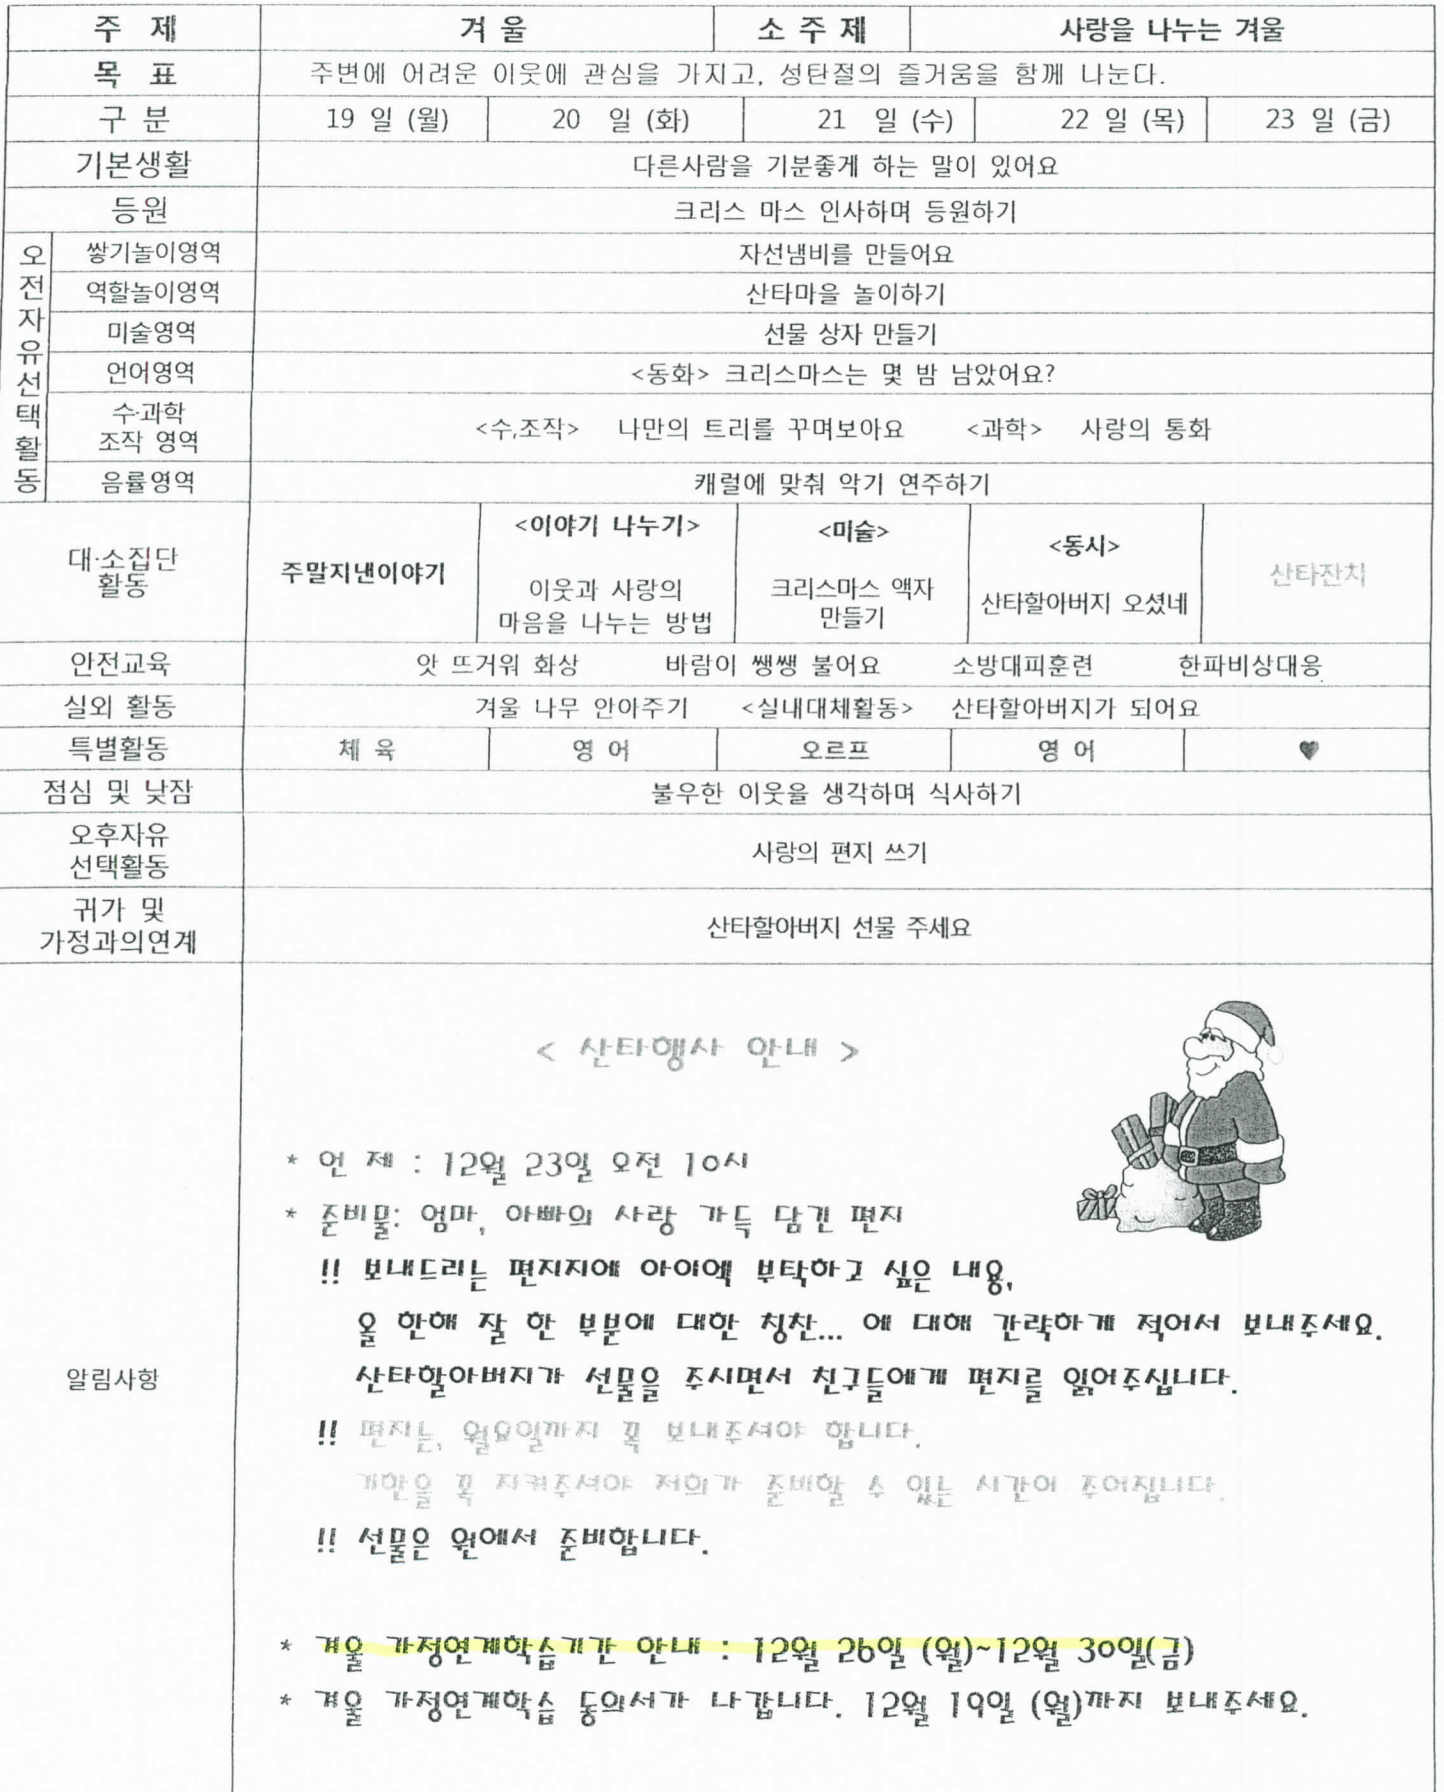 주 제 겨 울 소 주 제 사랑을 나누는 겨울
목 표 주변에 어려운 이웃에 관심을 가지고, 성탄절의 즐거움을 함께 나눈다.
구 분 19 일 (월) 20 일 (화) 21 일 (수) 22 일 (목) 23 일 (금)
기본생활 다른사람을 기분좋게 하는 말이 있어요
등원 크리스 마스 인사하며 등원하기
오전자유선택활동
쌓기놀이영역 자선냄비를 만들어요
역할놀이영역 산타마을 놀이하기
미술영역 선물 상자 만들기
언어영역 <동화> 크리스마스는 몇 밤 남았어요?
수·과학
조작 영역
<수,조작> 나만의 트리를 꾸며보아요 <과학> 사랑의 통화
음률영역 캐럴에 맞춰 악기 연주하기
대·소집단
활동
주말지낸이야기
<이야기 나누기>
이웃과 사랑의
마음을 나누는 방법
<미술>
크리스마스 액자
만들기
<동시>
산타할아버지 오셨네
산타잔치
안전교육 앗 뜨거워 화상 바람이 쌩쌩 불어요 소방대피훈련 한파비상대응
실외 활동 겨울 나무 안아주기 <실내대체활동> 산타할아버지가 되어요
특별활동 체 육 영 어 오르프 영 어 ♥
점심 및 낮잠 불우한 이웃을 생각하며 식사하기
오후자유
선택활동
사랑의 편지 쓰기
귀가 및
가정과의연계
산타할아버지 선물 주세요
알림사항
< 산타행사 안내 >
* 언 제 : 12월 23일 오전 10시
* 준비물: 엄마, 아빠의 사랑 가득 담긴 편지
!! 보내드리는 편지지에 아이에게 부탁하고 싶은 내용,
올 한해 잘 한 부분에 대한 칭찬... 에 대해 간략하게 적어서 보내주세요.
산타할아버지가 선물을 주시면서 친구들에게 편지를 읽어주십니다.
!! 편지는, 월요일까지 꼭 보내주셔야 합니다.
기한을 꼭 지켜주셔야 저희가 준비할 수 있는 시간이 주어집니다.
!! 선물은 원에서 준비합니다.
* 겨울 가정연계학습기간 안내 : 12월 26일 (월)~12월 30일(금)
* 겨울 가정연계학습 동의서가 나갑니다. 12월 19일 (월)까지 보내주세요.